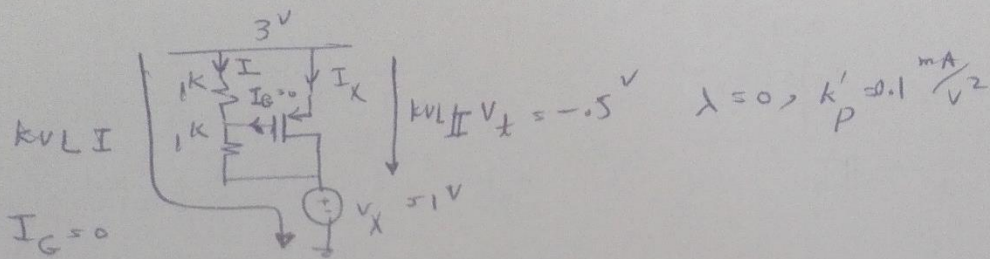 3V
1K I IG=0 IX
KVL I 1K KVL II Vt = -.5V λ=0, k'p=0.1 mA/V2
+ - VX =1V
IG=0